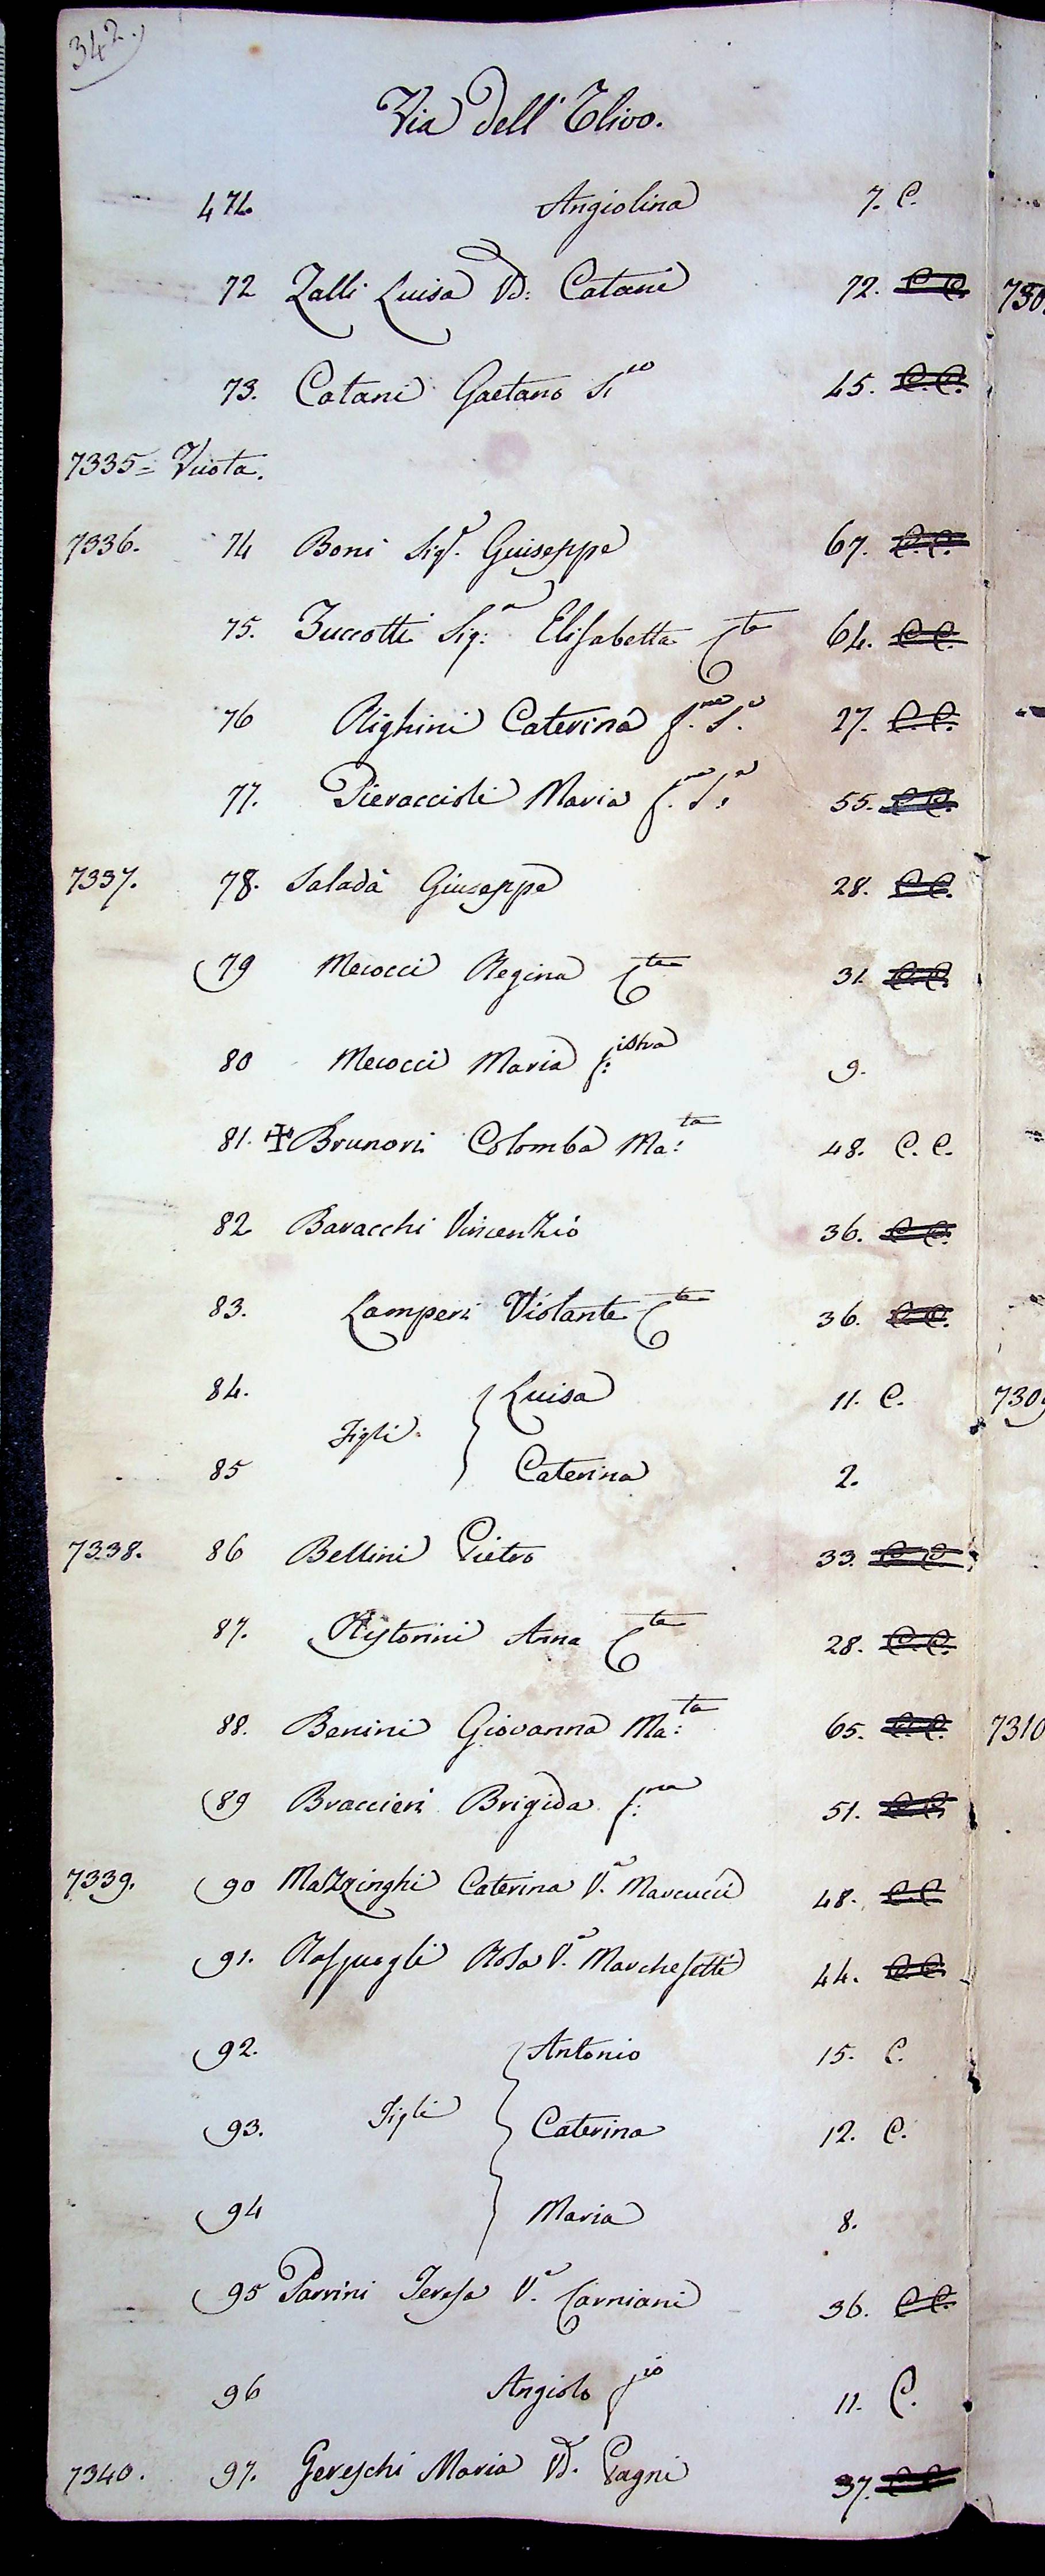 342.
Via dell' Ulivo.
471. Angiolina 7. C.
72 Zalli Luisa Vd: Catani 72. C. C.
73. Catani Gaetano 45. C. C.
7335= Vuota.
7336. 74 Boni Sigr. Guiseppe 67. C. C.
75. Zuccotti Sig:a Elisabetta Cta 64. C. C.
76 Righini Caterina 27. C. C.
77. Pieraccioli Maria 55. C. C.
7337. 78. Saladà Giuseppe 28. C. C.
79 Mecocci Regina Cta 31. C. C.
80 Mecocci Maria f:istra 9.
81. ✠ Brunori Colomba Ma:ta 48. C. C.
82 Baracchi Vincenzio 36. C. C.
83. Lamperi Violante Cta 36. C. C.
84. Luisa 11. C.
Figli
85 Caterina 2.
7338. 86 Bellini Pietro 33. C. C.
87. Ristorini Anna Cta 28. C. C.
88. Benini Giovanna Ma:ta 65. C. C.
89 Braccieri Brigida f:ma 51. C. C.
7339. 90 Mazzinghi Caterina V.a Marcucci 48. C. C
91. Raspuogli Rosa V.a Marchesetti 44. C. C.
92. Antonio 15. C.
93. Figli Caterina 12. C.
94 Maria 8.
95 Parrini Teresa V.a Carniani 36. C. C.
96 Angiolo fio 11. C.
7340. 97. Gereschi Maria Vd. Pagni 37. C. C.
730
7309
7310